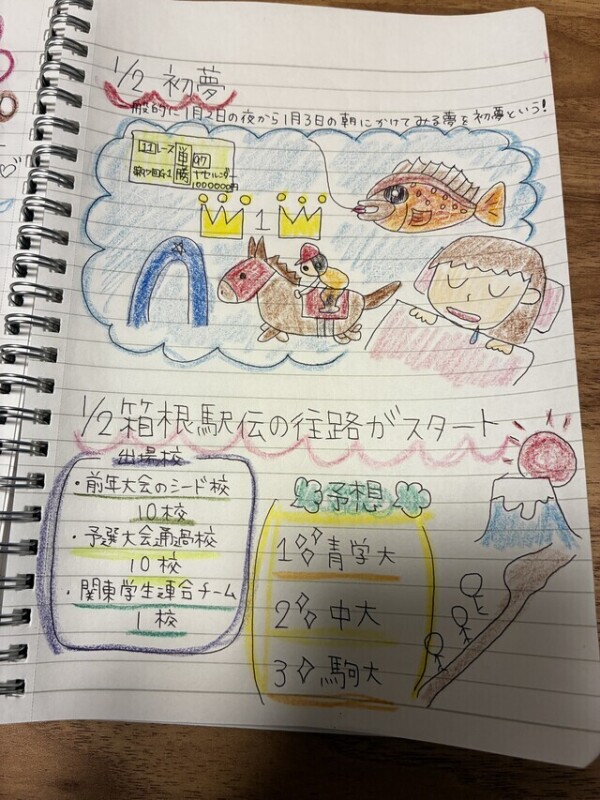 1/2 初夢
一般的に1月2日の夜から1月3日の朝にかけてみる夢を初夢という!
11レース
単勝
07
100000円
1
1/2 箱根駅伝の往路がスタート
出場校
・前年大会のシード校
10校
・予選大会通過校
10校
・関東学生連合チーム
1校
予想
1 青学大
2 中大
3 駒大